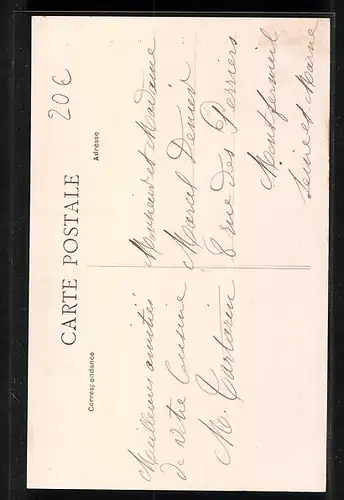 20€
CARTE POSTALE
Correspondance
Adresse
Meilleures amitiés
de votre Cousine
M. Tartarin
Monsieur et Madame
Marcel Denier
6 rue des Perriers
Montfermeil
Seine et Marne